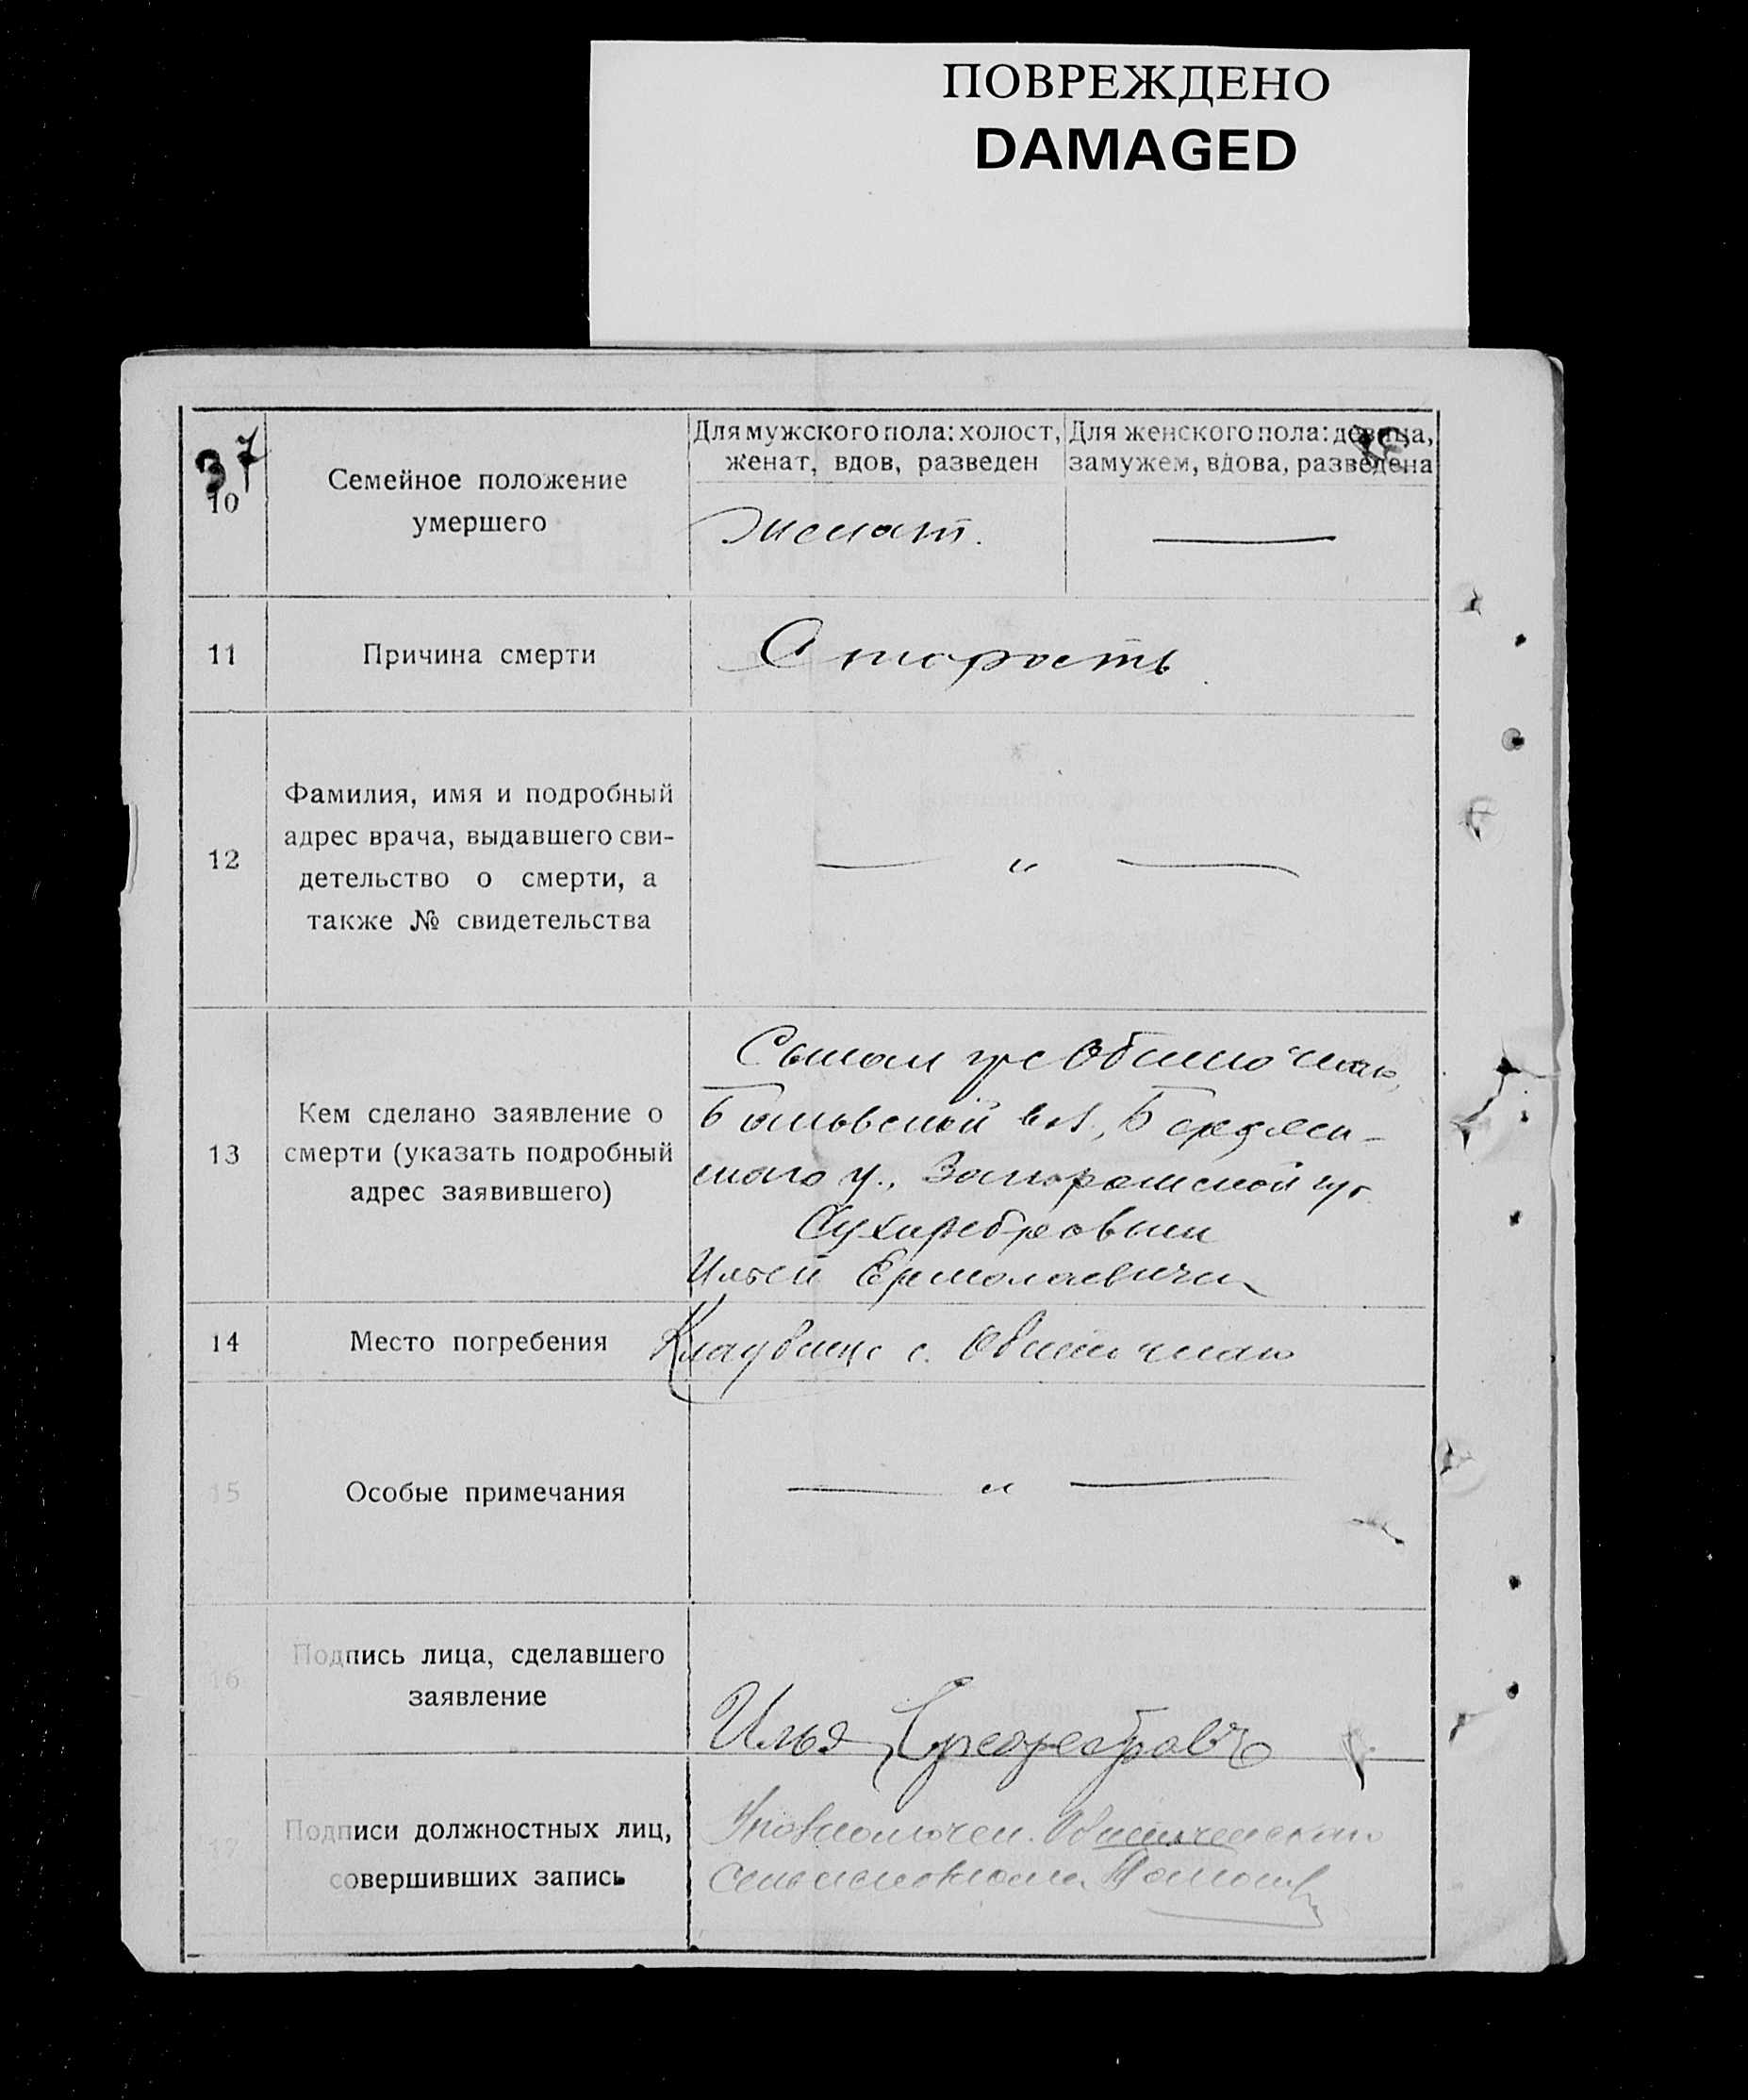 ПОВРЕЖДЕНО
DAMAGED
37
10
Семейное положение
умершего
Для мужского пола: холост,
женат, вдов, разведен
Для женского пола: девица,
замужем, вдова, разведена
Женат.
11
Причина смерти
Старость
12
Фамилия, имя и подробный
адрес врача, выдавшего сви-
детельство о смерти, а
также № свидетельства
— " —
13
Кем сделано заявление о
смерти (указать подробный
адрес заявившего)
Сыном гр с Обиточная,
вол., Бердян-
ского у., Запорожской губ
Сухоребровым
Ильей Ермолаевичем
14
Место погребения
Кладбище с. Обиточная
15
Особые примечания
— " —
16
Подпись лица, сделавшего
заявление
Илья
17
Подписи должностных лиц,
совершивших запись